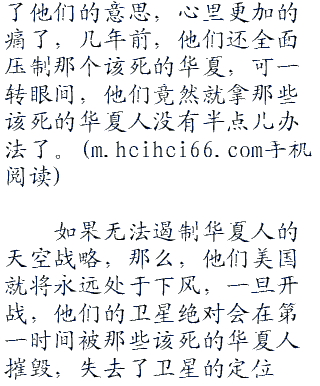 了他们的意思，心里更加的
痛了，几年前，他们还全面
压制那个该死的华夏，可一
转眼间，他们竟然就拿那些
该死的华夏人没有半点儿办
法了。(m.hcihci66.com手机
阅读)
如果无法遏制华夏人的
天空战略，那么，他们美国
就将永远处于下风，一旦开
战，他们的卫星绝对会在第
一时间被那些该死的华夏人
摧毁，失去了卫星的定位